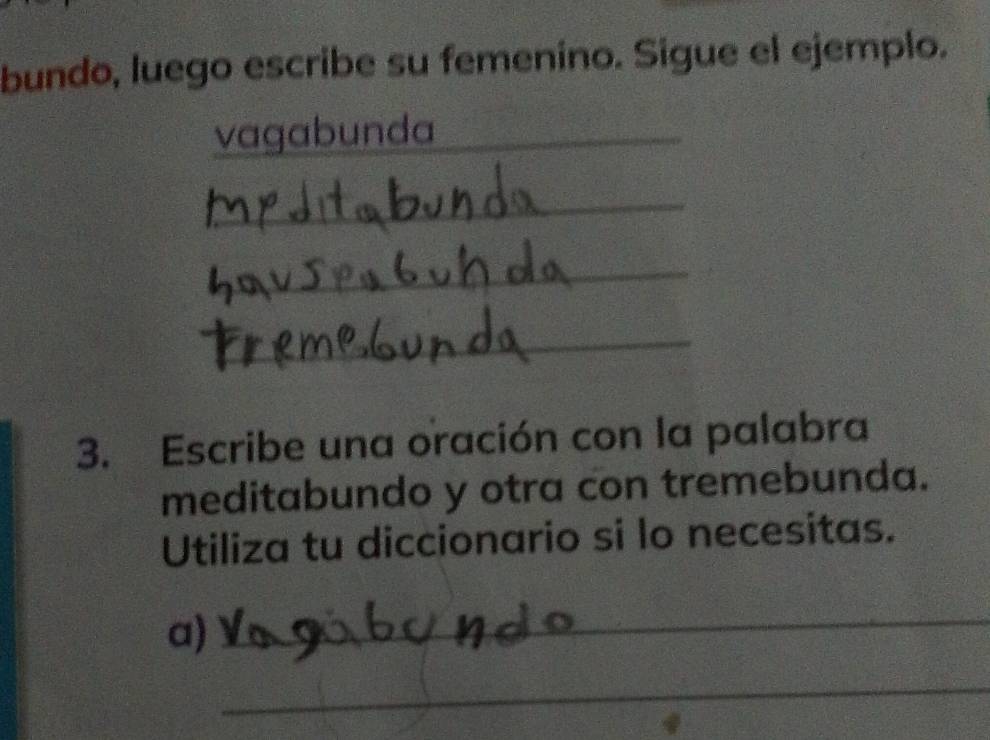 bundo, luego escribe su femenino. Sigue el ejemplo.
vagabunda
meditabunda
hauseabunda
tremebunda
3. Escribe una oración con la palabra
meditabundo y otra con tremebunda.
Utiliza tu diccionario si lo necesitas.
a) Vagabundo